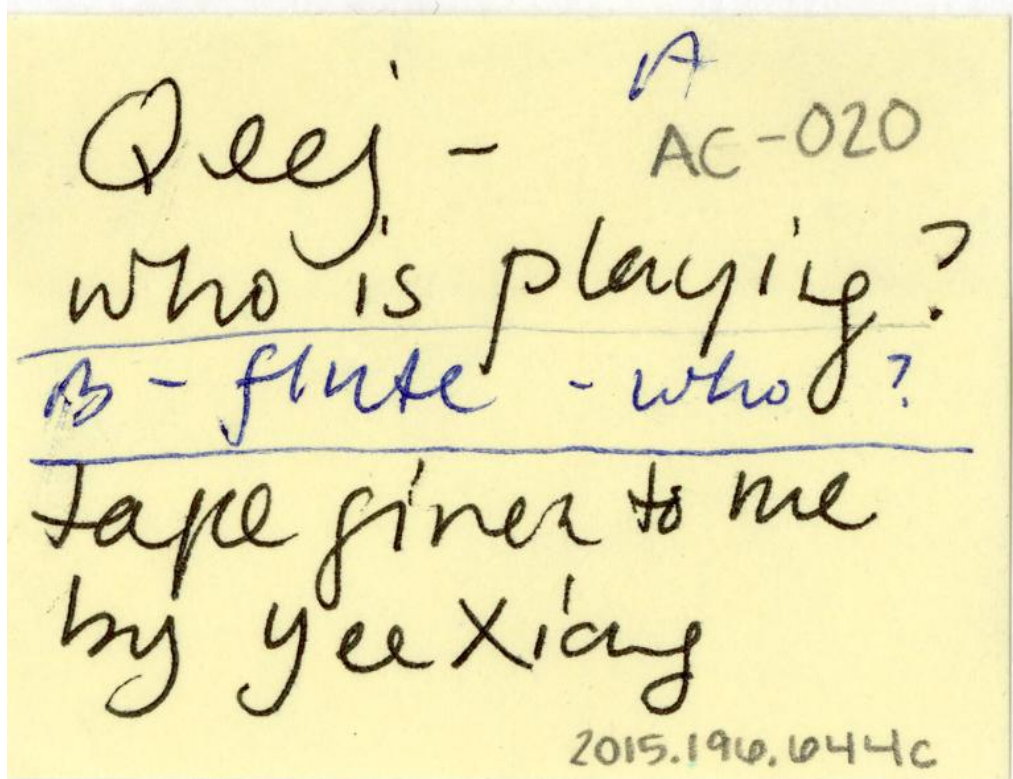 A
Qeej - AC-020
who is playing?
B - flute - who?
tape given to me
by Yee Xiong
2015.196.644c